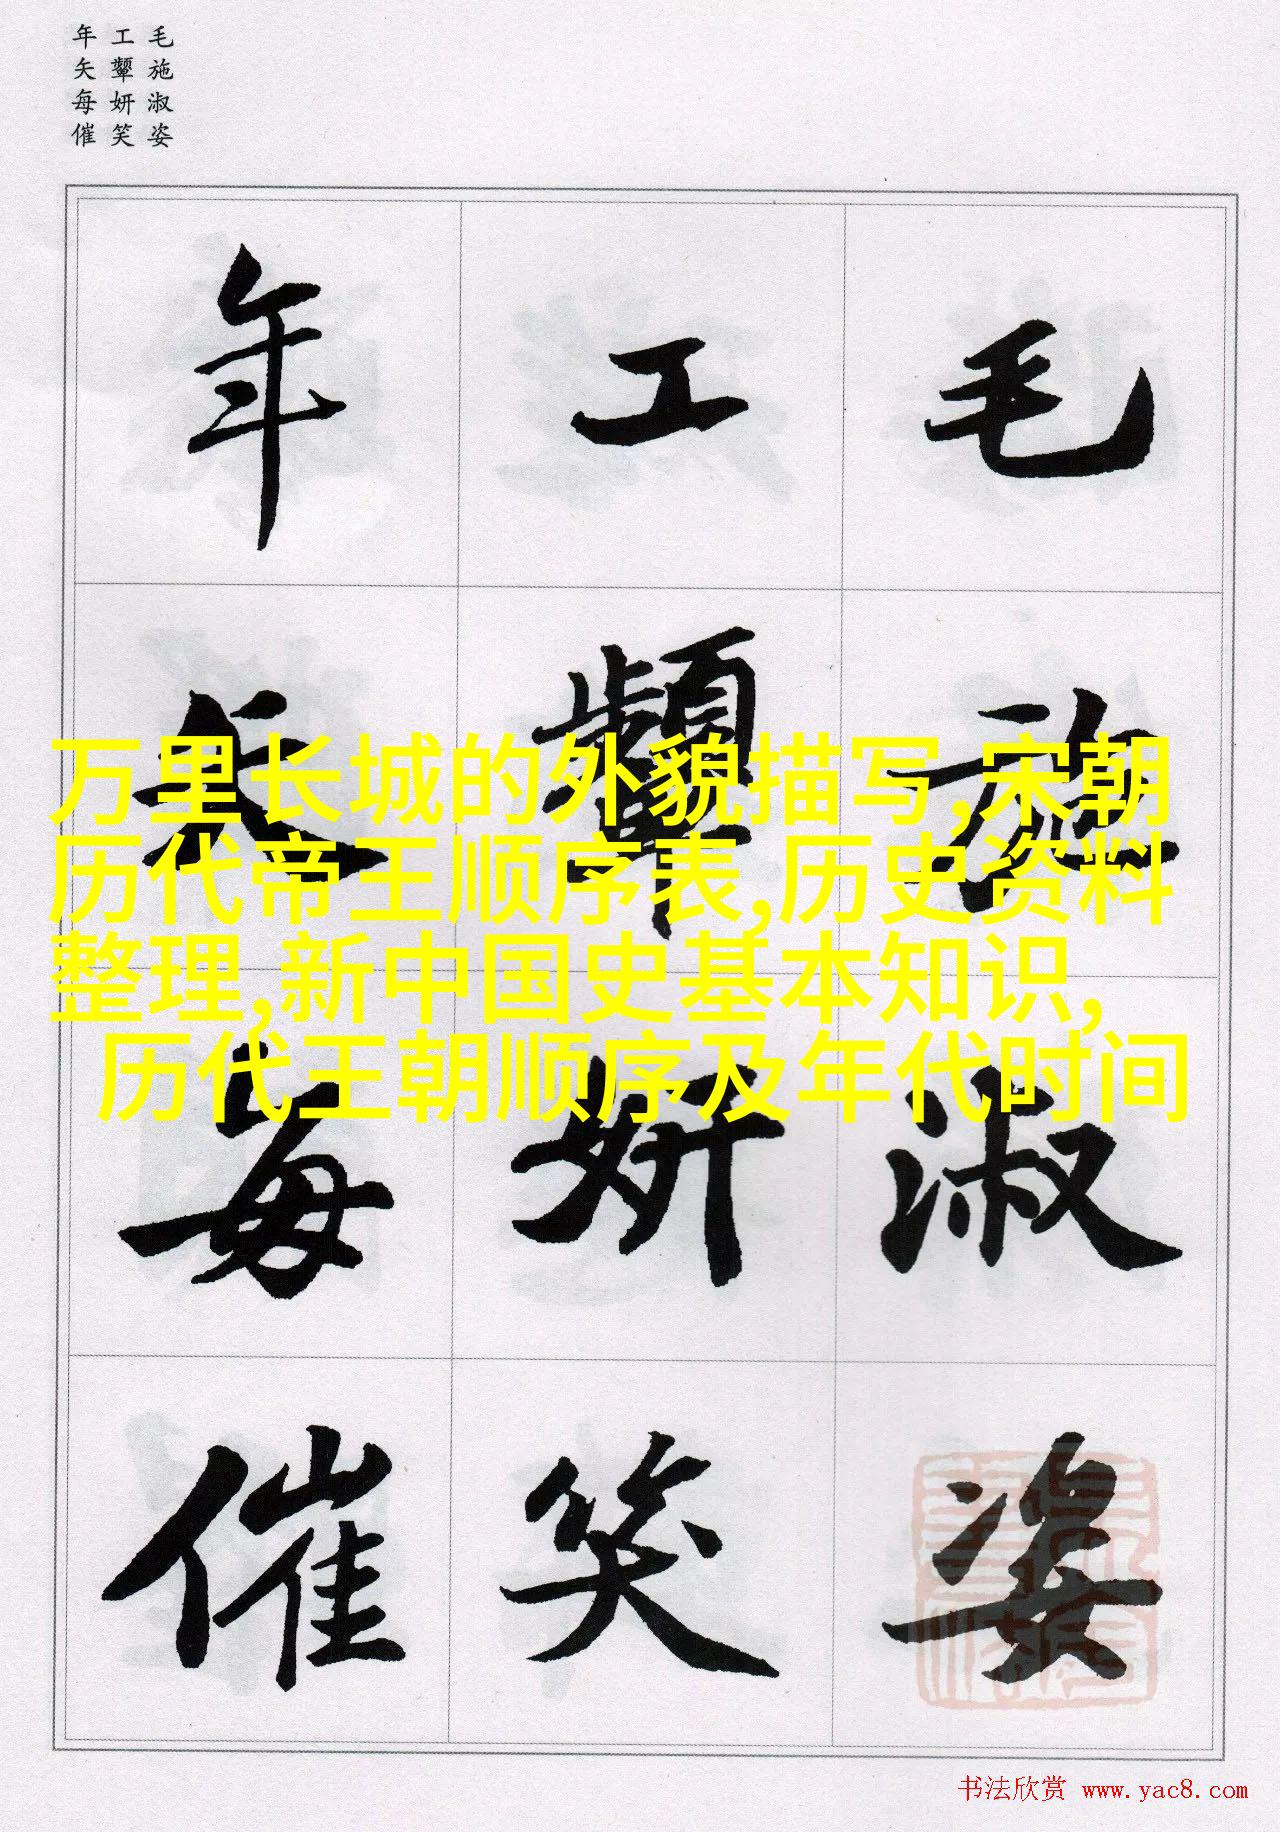 毛施淑姿
工颦妍笑
年矢每催
毛施淑姿
工颦妍笑
年矢每催
万里长城的外貌描写,宋朝
历代帝王顺序表,历史资料
整理,新中国史基本知识,
历代王朝顺序及年代时间
书法欣赏 www.yac8.com